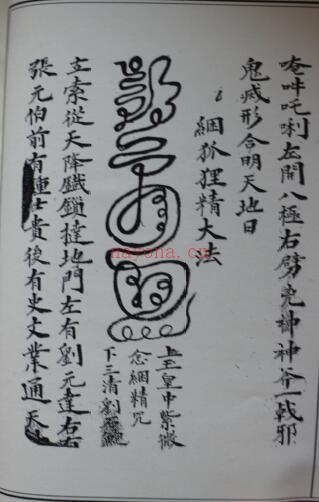 唵吽吒唎左開八極右劈兇神神斧一戟邪
鬼滅形合明天地日
綑狐狸精大法
上玉皇中紫微
念綑精咒
下三清劉
立索從天降鐵鎖撻地門左有劉元達右有
張元伯前有鍾仕貴後有史文業通天
nayona.cn